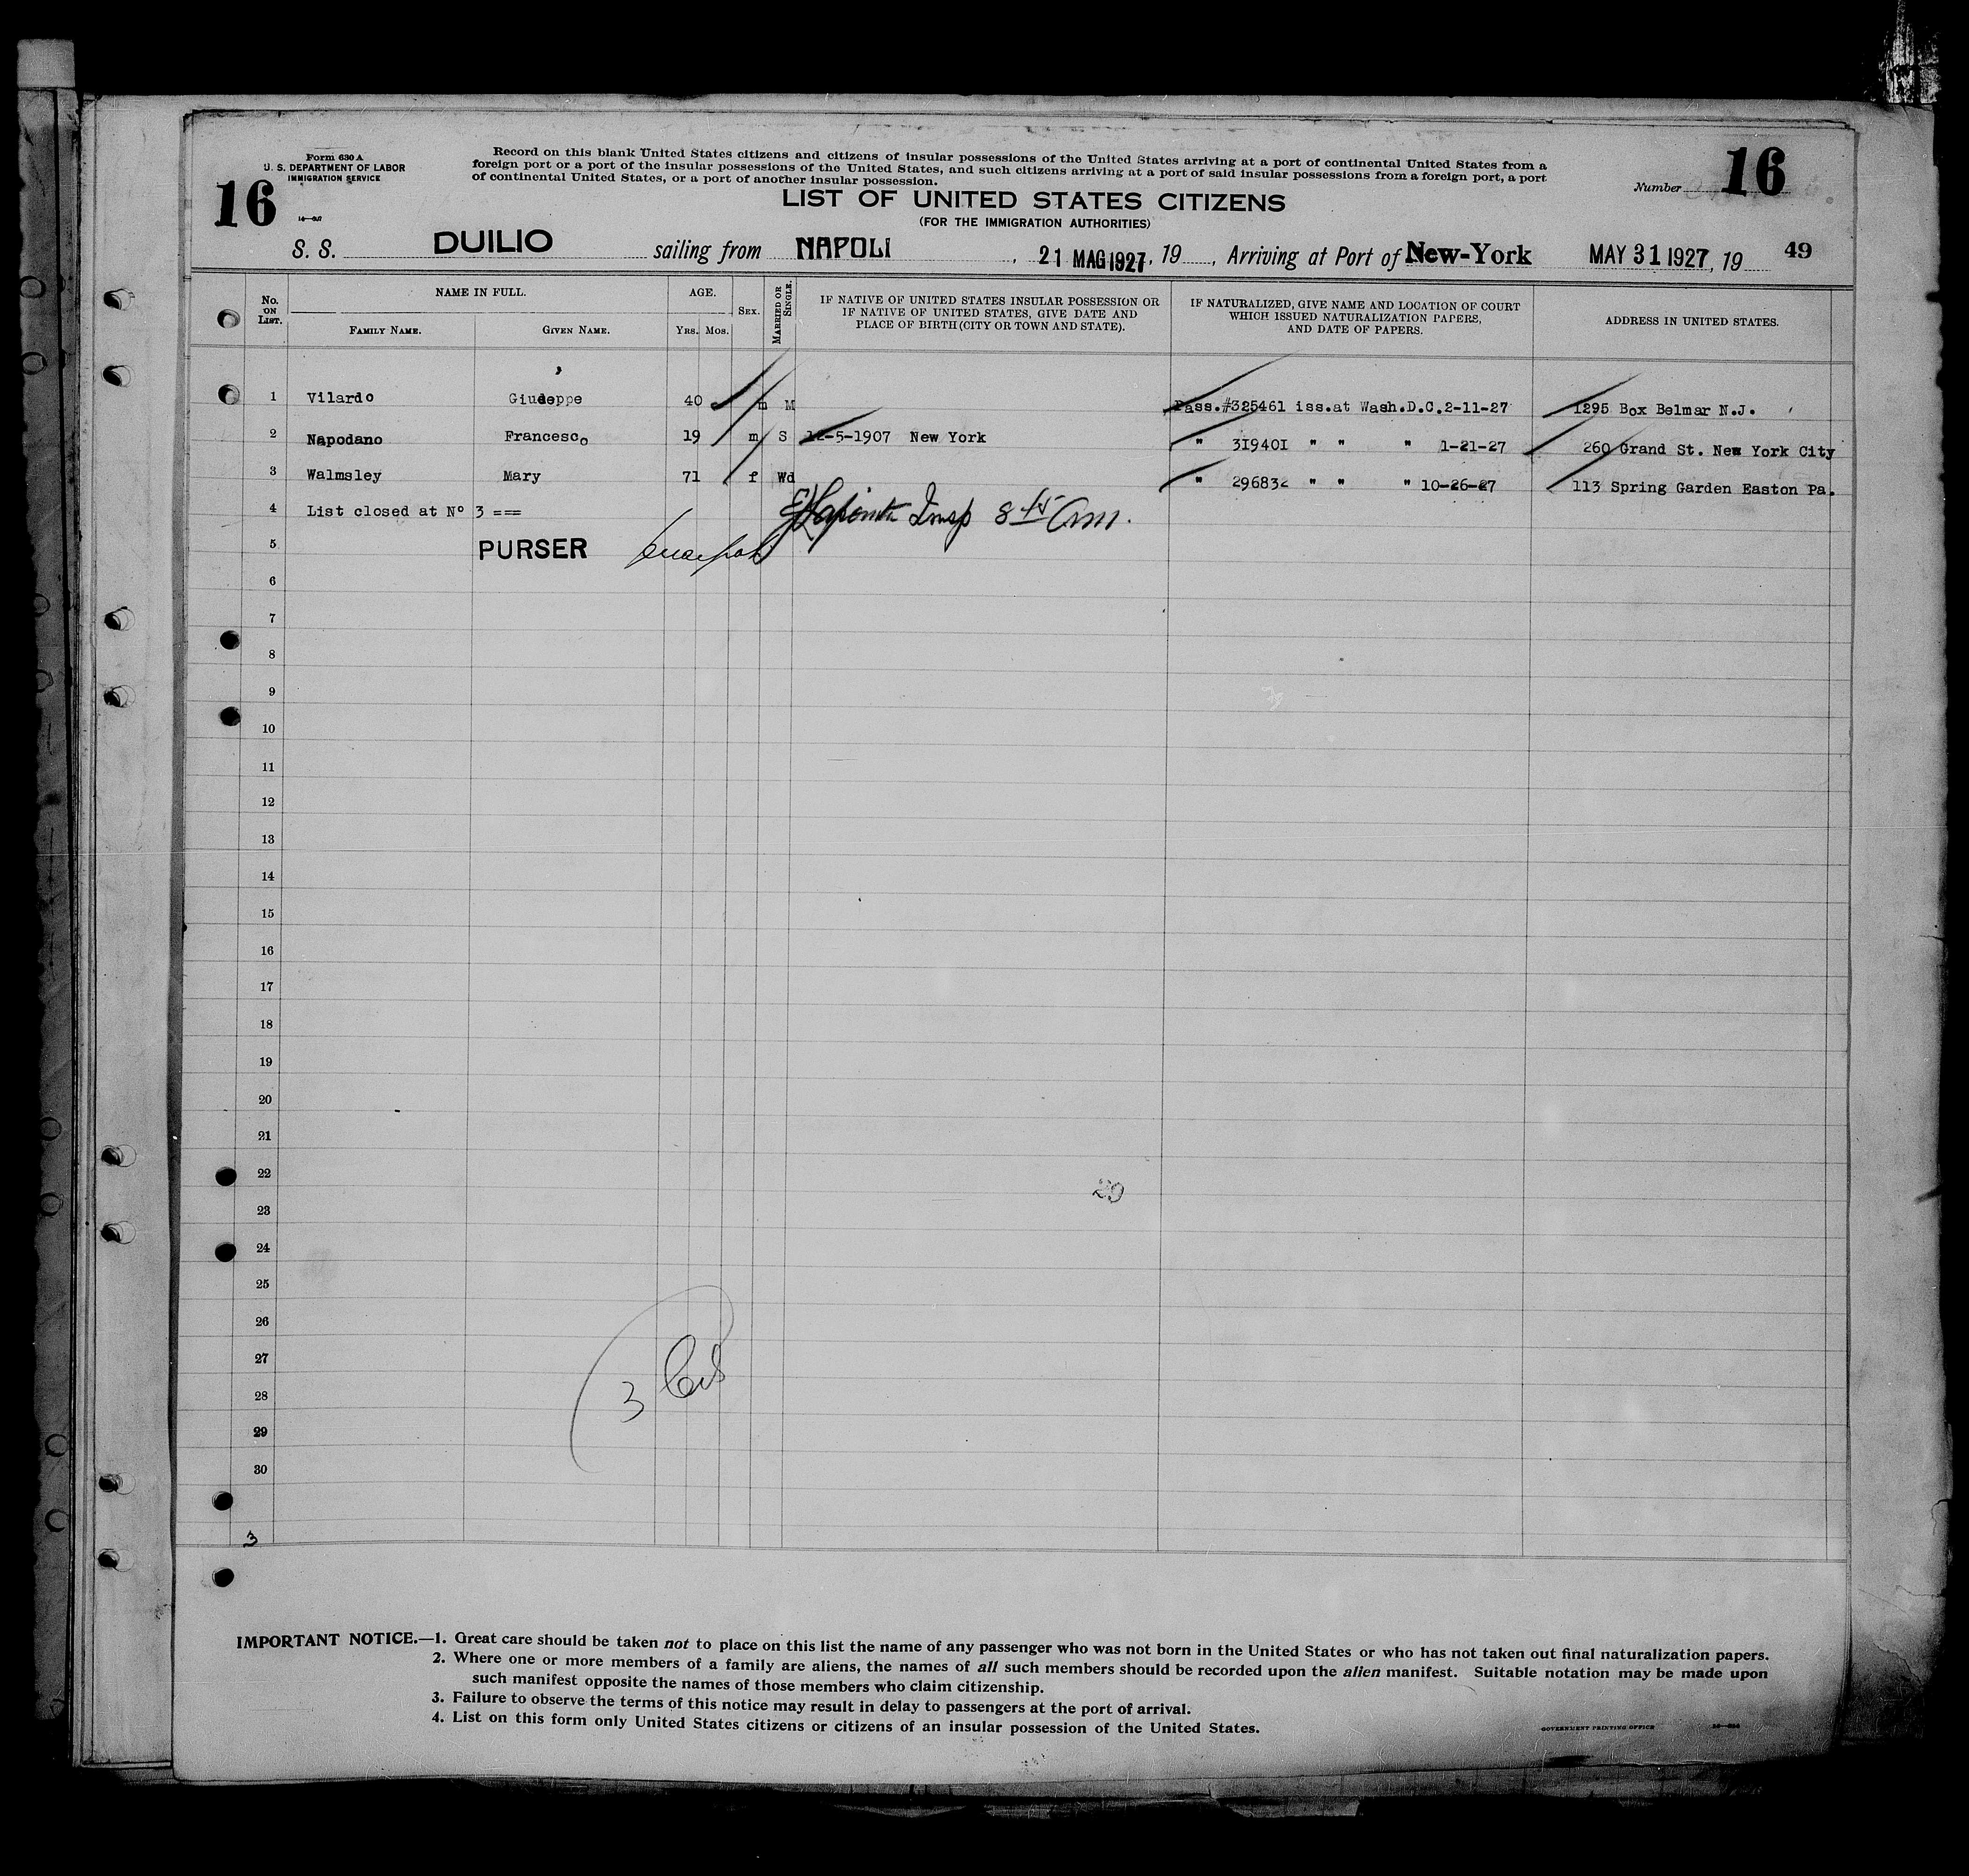 Form 630 A
U. S. DEPARTMENT OF LABOR
IMMIGRATION SERVICE
16
Record on this blank United States citizens and citizens of insular possessions of the United States arriving at a port of continental United States from a
foreign port or a port of the insular possessions of the United States, and such citizens arriving at a port of said insular possessions from a foreign port, a port
of continental United States, or a port of another insular possession.
LIST OF UNITED STATES CITIZENS
(FOR THE IMMIGRATION AUTHORITIES)
Number 16
S. S. DUILIO sailing from NAPOLI, 21 MAG 1927, 19, Arriving at Port of New-York MAY 31 1927, 19 49
No. ON LIST.
NAME IN FULL.
FAMILY NAME.
GIVEN NAME.
AGE.
Yrs. Mos.
SEX.
MARRIED OR SINGLE.
IF NATIVE OF UNITED STATES INSULAR POSSESSION OR
IF NATIVE OF UNITED STATES, GIVE DATE AND
PLACE OF BIRTH (CITY OR TOWN AND STATE).
IF NATURALIZED, GIVE NAME AND LOCATION OF COURT
WHICH ISSUED NATURALIZATION PAPERS,
AND DATE OF PAPERS.
ADDRESS IN UNITED STATES.
1 Vilardo Giuseppe 40 m M Pass.#325461 iss.at Wash.D.C.2-11-27 1295 Box Belmar N.J.
2 Napodano Francesco 19 m S 12-5-1907 New York " 319401 " " " 1-21-27 260 Grand St. New York City
3 Walmsley Mary 71 f Wd " 296832 " " " 10-26-27 113 Spring Garden Easton Pa.
4 List closed at Nº 3 === Insp 8 45 Am.
5 PURSER
6
7
8
9
10
11
12
13
14
15
16
17
18
19
20
21
22
23
24
25
26
27
28
29
30
29
3
3
IMPORTANT NOTICE.—1. Great care should be taken not to place on this list the name of any passenger who was not born in the United States or who has not taken out final naturalization papers.
2. Where one or more members of a family are aliens, the names of all such members should be recorded upon the alien manifest. Suitable notation may be made upon
such manifest opposite the names of those members who claim citizenship.
3. Failure to observe the terms of this notice may result in delay to passengers at the port of arrival.
4. List on this form only United States citizens or citizens of an insular possession of the United States.
GOVERNMENT PRINTING OFFICE